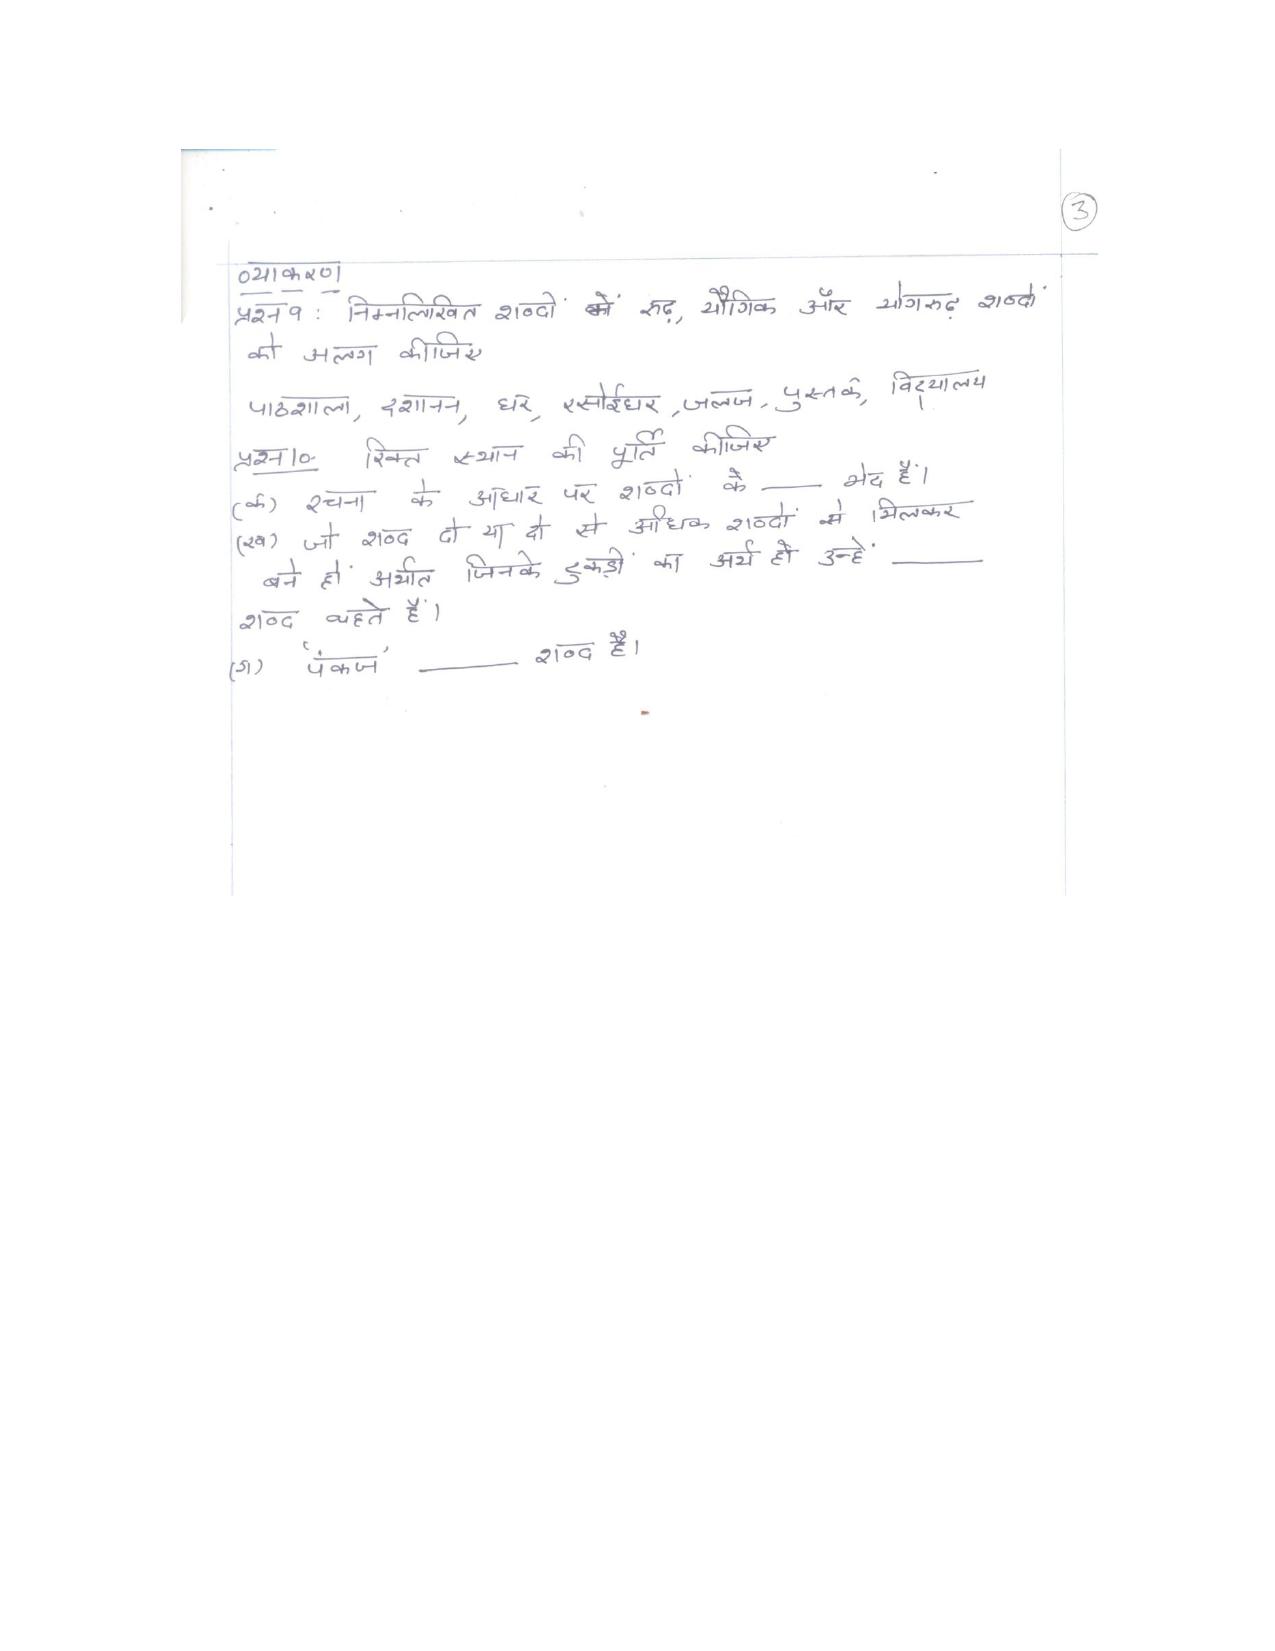 3
व्याकरण
प्रश्न 9 : निम्नलिखित शब्दों में रुढ़, यौगिक और योगरुढ़ शब्दों
को अलग कीजिए
पाठशाला, दशानन, घर, रसोईघर, जलज, पुस्तक, विद्यालय
प्रश्न 10 रिक्त स्थान की पूर्ति कीजिए
(क) रचना के आधार पर शब्दों के ____ भेद हैं।
(ख) जो शब्द दो या दो से अधिक शब्दों से मिलकर
बने हों अर्थात जिनके टुकड़ों का अर्थ हो उन्हें ____
शब्द कहते हैं।
(ग) 'पंकज' ____ शब्द है।